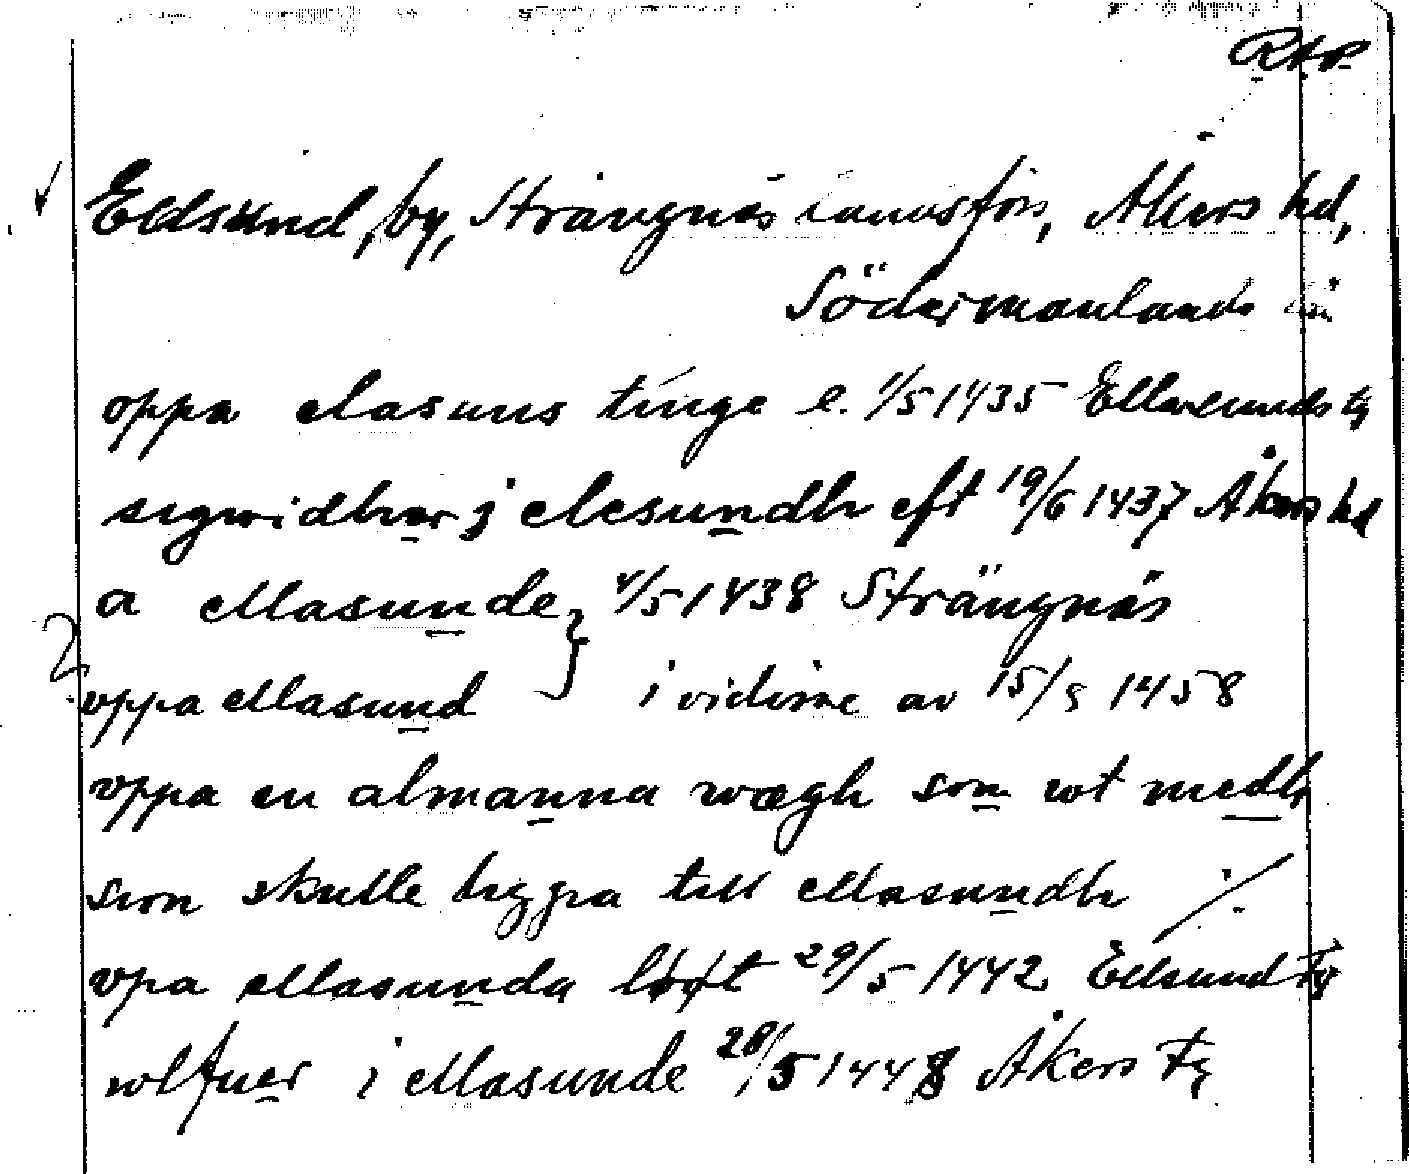 RAP
Edsund, by, Strängnäs landsförs, Åkers hd,
Södermanlands län
oppa elasuns tinge e. 1/5 1435 Ellasunds
sigwidher j elesundh eft 19/6 1437 Åkers hd
a ellasunde } 4/5 1438 Strängnäs
? vppa ellasund } i vidisse av 15/5 1458
vppa en almanna wægh som wt medh
som skulle byggia till ellasundh ./.
vpa ellasunda löpt 29/5 1442 Edsund Fg
wlfuer i ellasunde 28/5 1448 Åkers Fg